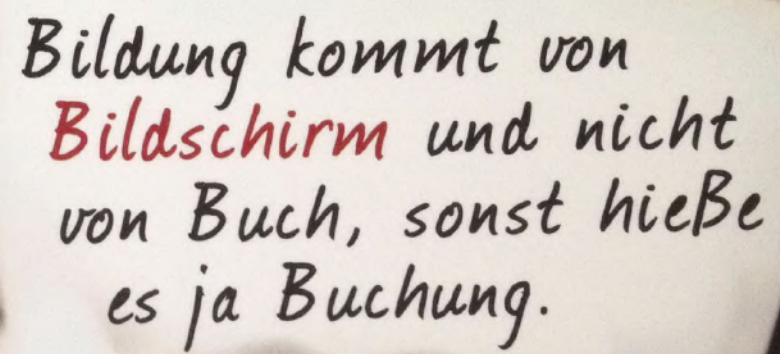 Bildung kommt von
Bildschirm und nicht
von Buch, sonst hieße
es ja Buchung.